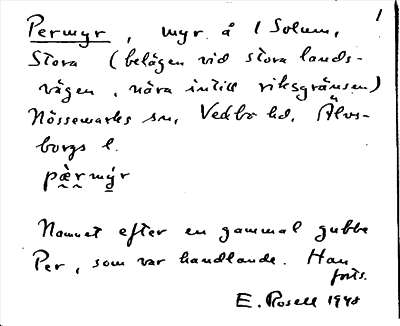 1
Permyr, myr å 1 Solum,
Stora (belägen vid stora lands-
vägen, nära intill riksgränsen)
Nössemarks sn, Vedbo hd, Älvs-
borgs l.
pæ̀r mýr
Namnet efter en gammal gubbe
Per, som var handlande. Han
forts.
E. Rosell 1948